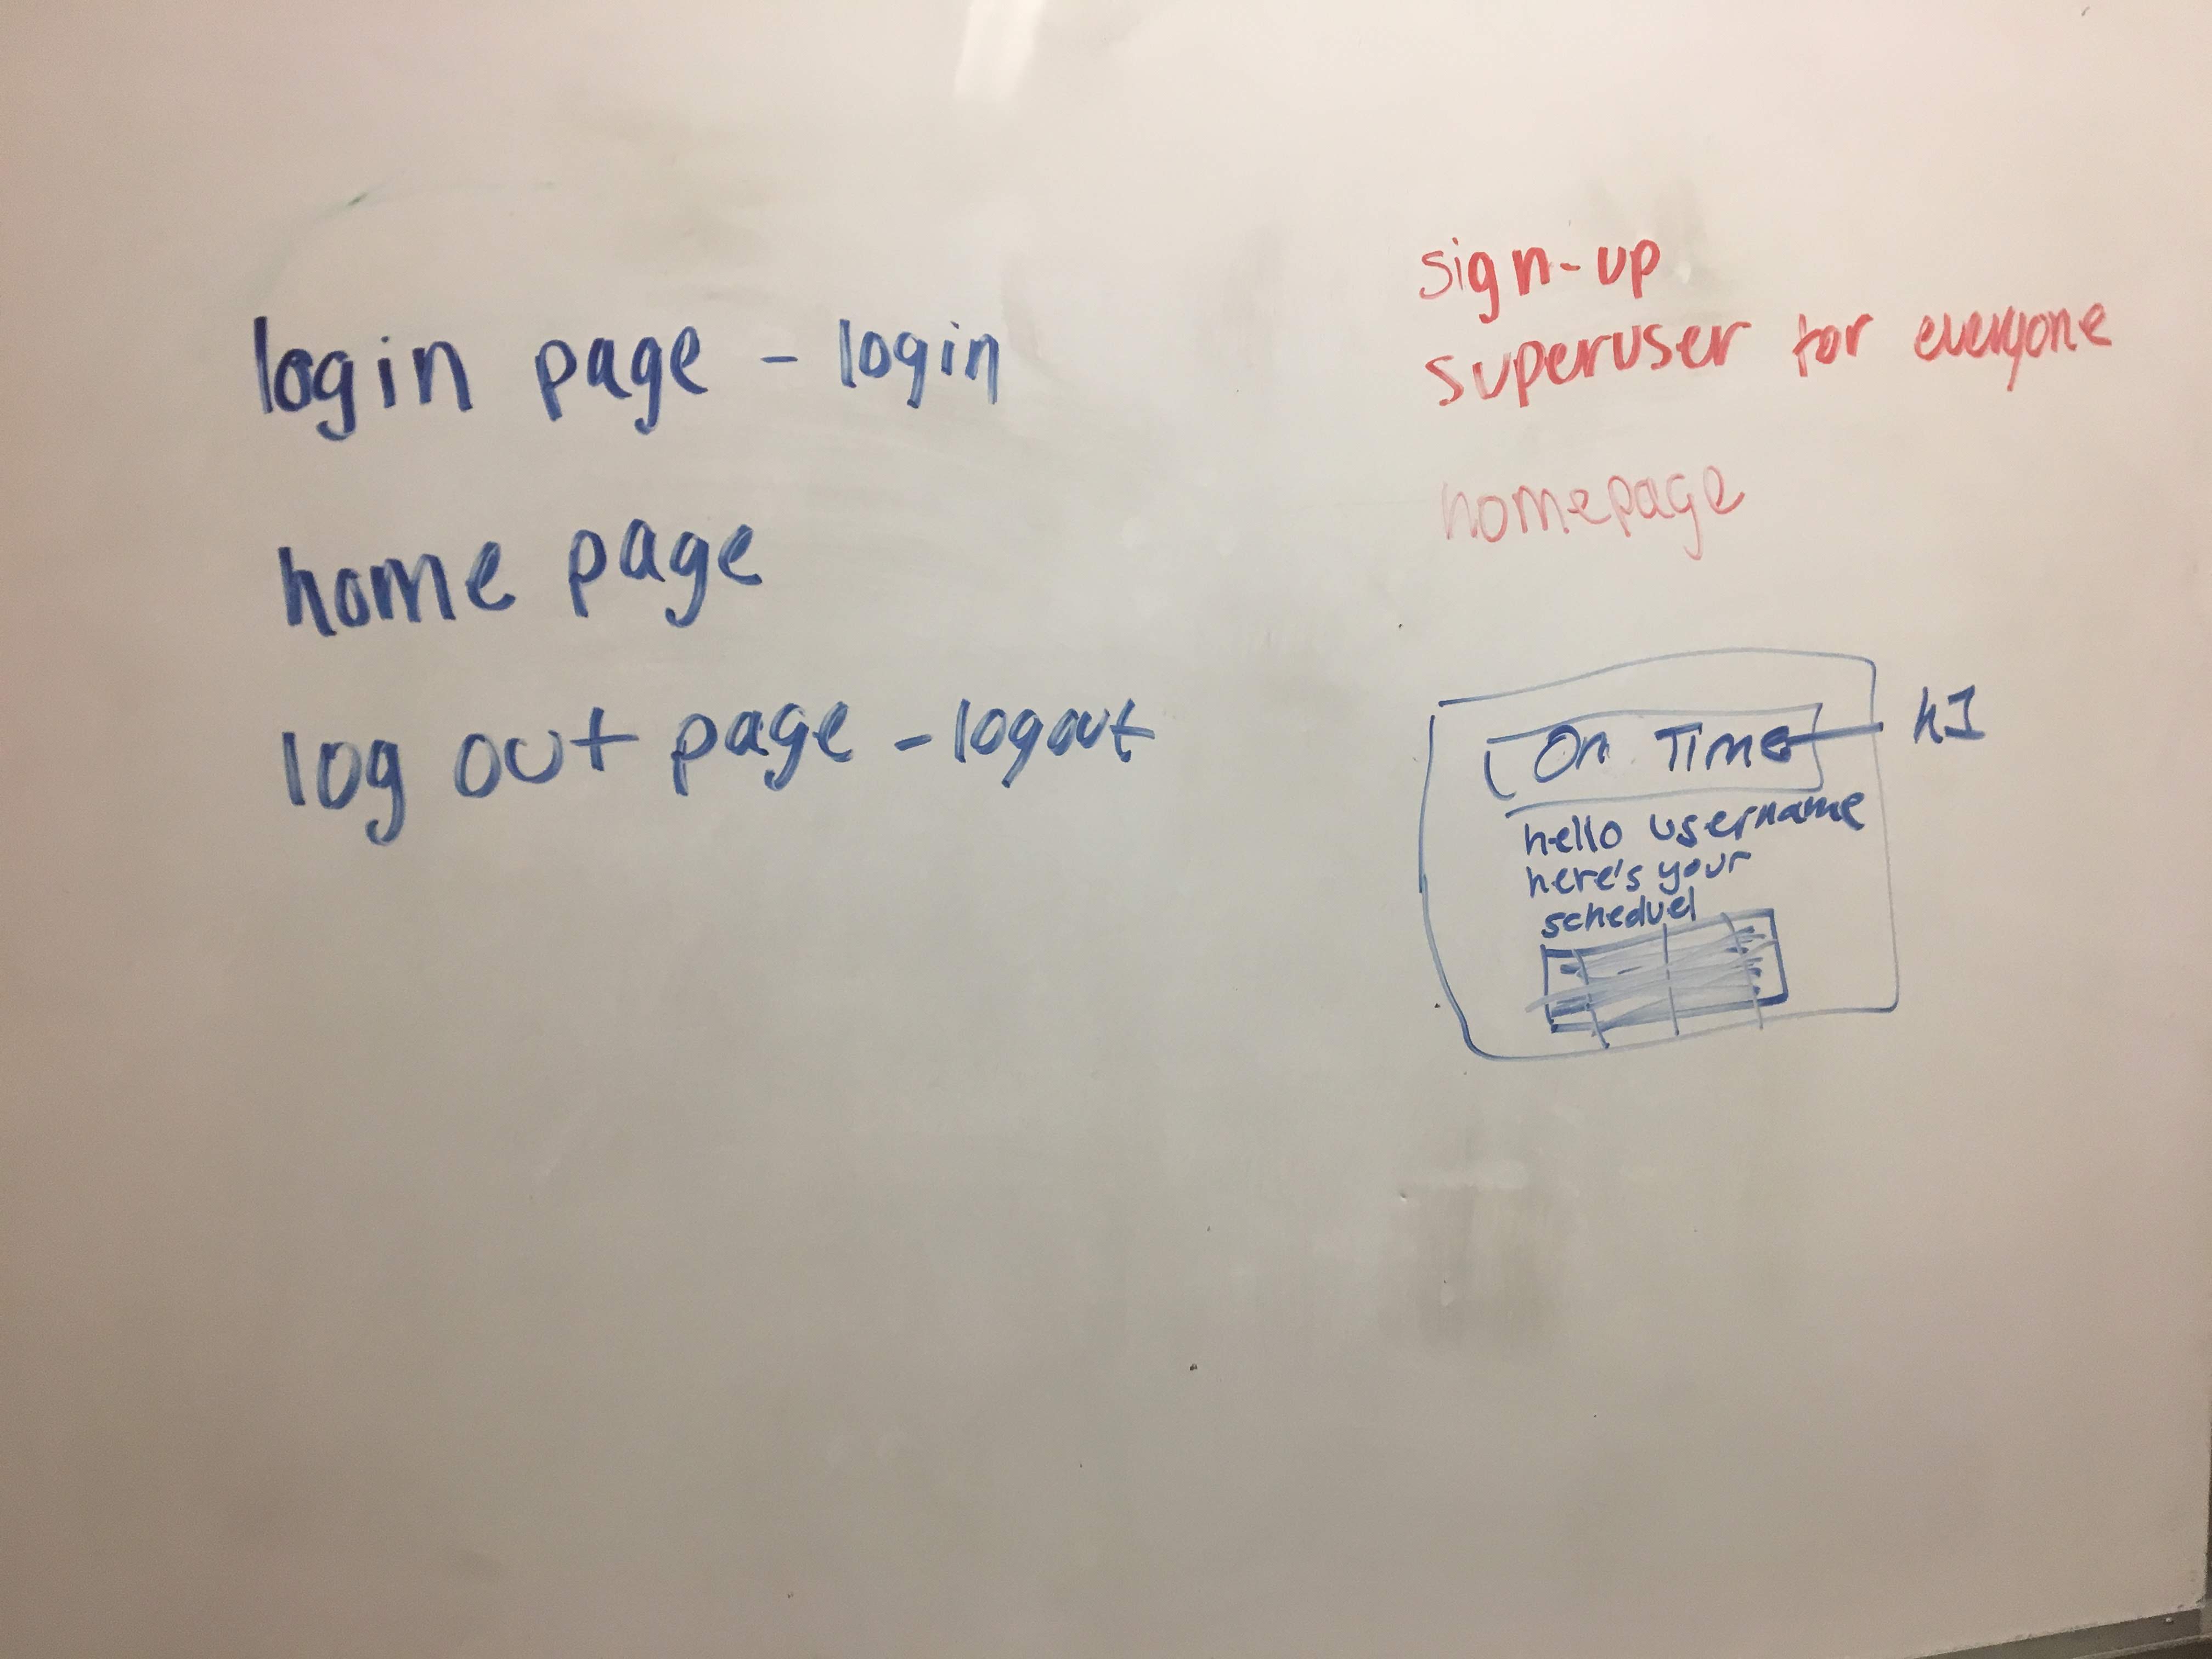 login page - login
home page
log out page - logout
sign-up
superuser for everyone
homepage
On Time
h1
hello username
here's your
scheduel